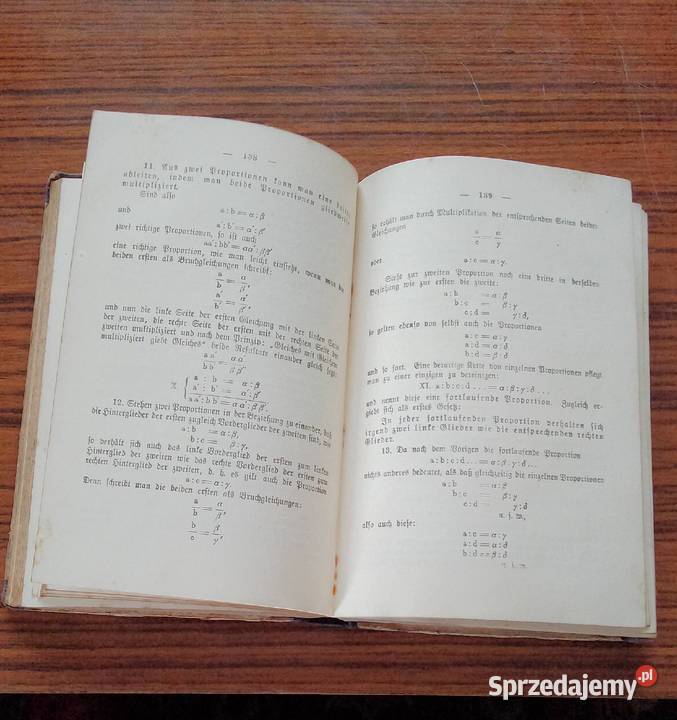 — 138 —
11. Aus zwei Proportionen kann man eine dritte
ableiten, indem man beide Proportionen gliedweise
multipliziert.
Sind also
a : b = α : β
und
a′ : b′ = α′ : β′
zwei richtige Proportionen, so ist auch
aa′ : bb′ = αα′ : ββ′
eine richtige Proportion, wie man leicht einsieht, wenn man die
beiden ersten als Bruchgleichungen schreibt:
a/b = α/β,
a′/b′ = α′/β′,
und nun die linke Seite der ersten Gleichung mit der linken Seite
der zweiten, die rechte Seite der ersten mit der rechten Seite der
zweiten multipliziert und nach dem Prinzip: „Gleiches mit Gleichem
multipliziert giebt Gleiches“ beide Resultate einander gleich setzt:
aa′/bb′ = αα′/ββ′
X. { a : b = α : β
a′ : b′ = α′ : β′
aa′ : bb′ = αα′ : ββ′.
12. Stehen zwei Proportionen in der Beziehung zu einander, daß
die Hinterglieder der ersten zugleich Vorderglieder der zweiten sind, wie
a : b = α : β,
b : c = β : γ,
so verhält sich auch das linke Vorderglied der ersten zum linken
Hinterglied der zweiten wie das rechte Vorderglied der ersten zum
rechten Hinterglied der zweiten, d. h. es gilt auch die Proportion
a : c = α : γ.
Denn schreibt man die beiden ersten als Bruchgleichungen:
a/b = α/β,
b/c = β/γ,
— 139 —
so erhält man durch Multiplikation der entsprechenden Seiten beider
Gleichungen
a/c = α/γ
oder
a : c = α : γ.
Steht zur zweiten Proportion noch eine dritte in derselben
Beziehung wie zur ersten die zweite:
a : b = α : β
b : c = β : γ
c : d = γ : δ,
so gelten ebenso von selbst auch die Proportionen
a : c = α : γ
a : d = α : δ
b : d = β : δ
und so fort. Eine derartige Kette von einzelnen Proportionen pflegt
man zu einer einzigen zu vereinigen:
XI. a : b : c : d ... = α : β : γ : δ ...
und nennt diese eine fortlaufende Proportion. Zugleich er-
giebt sich als erstes Gesetz:
In jeder fortlaufenden Proportion verhalten sich
irgend zwei linke Glieder wie die entsprechenden rechten
Glieder.
13. Da nach dem Vorigen die fortlaufende Proportion
a : b : c : d ... = α : β : γ : δ ...
nichts anderes bedeutet, als daß gleichzeitig die einzelnen Proportionen
a : b = α : β
b : c = β : γ
c : d = γ : δ
u. s. w.,
also auch diese:
a : c = α : γ
a : d = α : δ
b : d = β : δ
u. s. w.
Sprzedajemy.pl